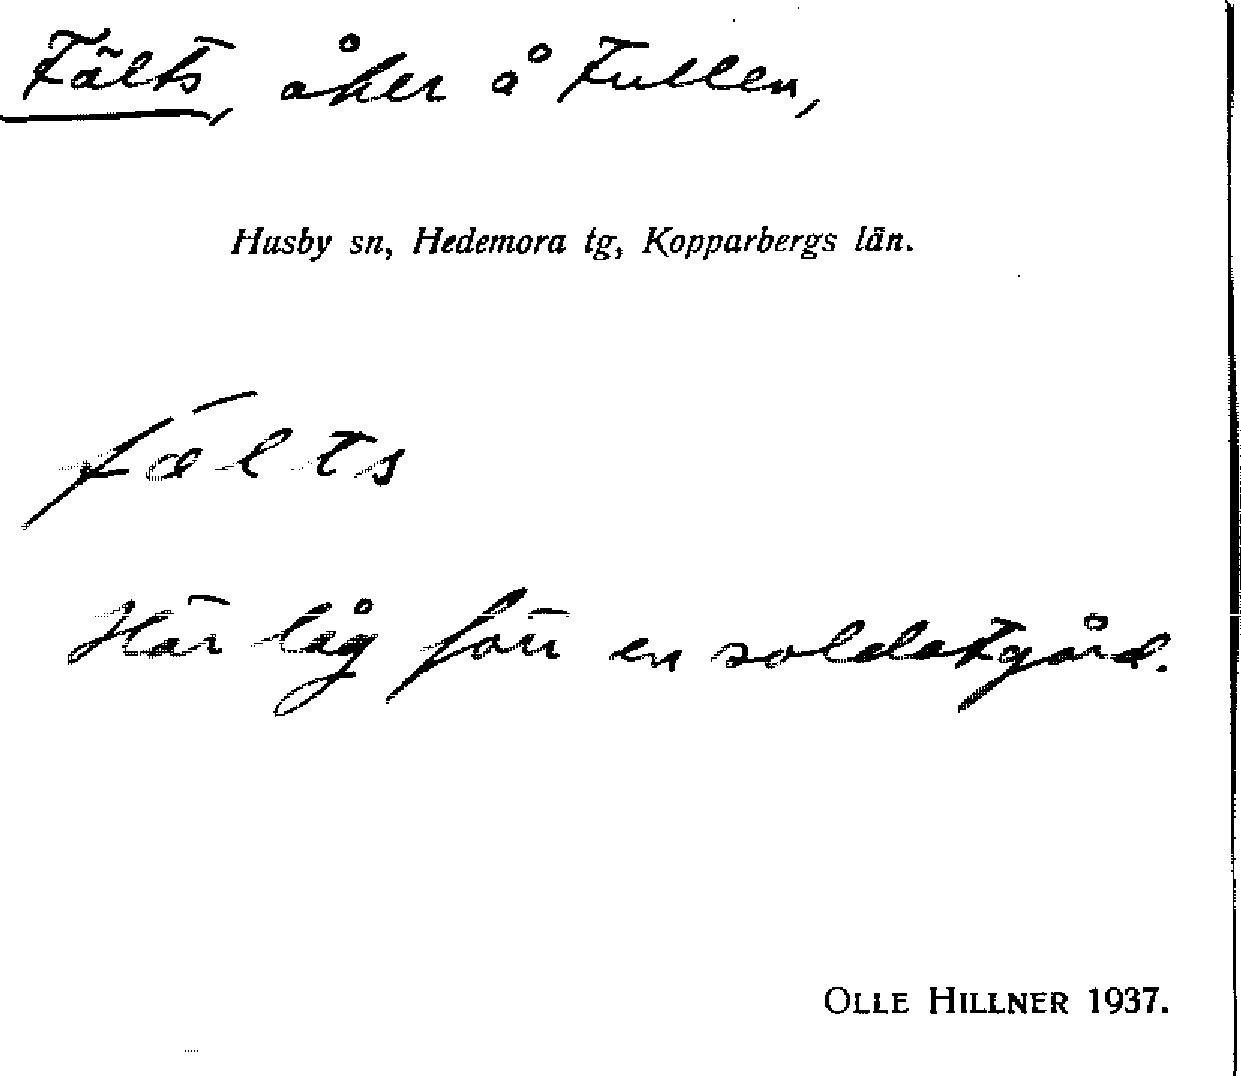 Fälts, åker å Fullen,
Husby sn, Hedemora tg, Kopparbergs län.
fælts
Här låg förr en soldatgård.
OLLE HILLNER 1937.